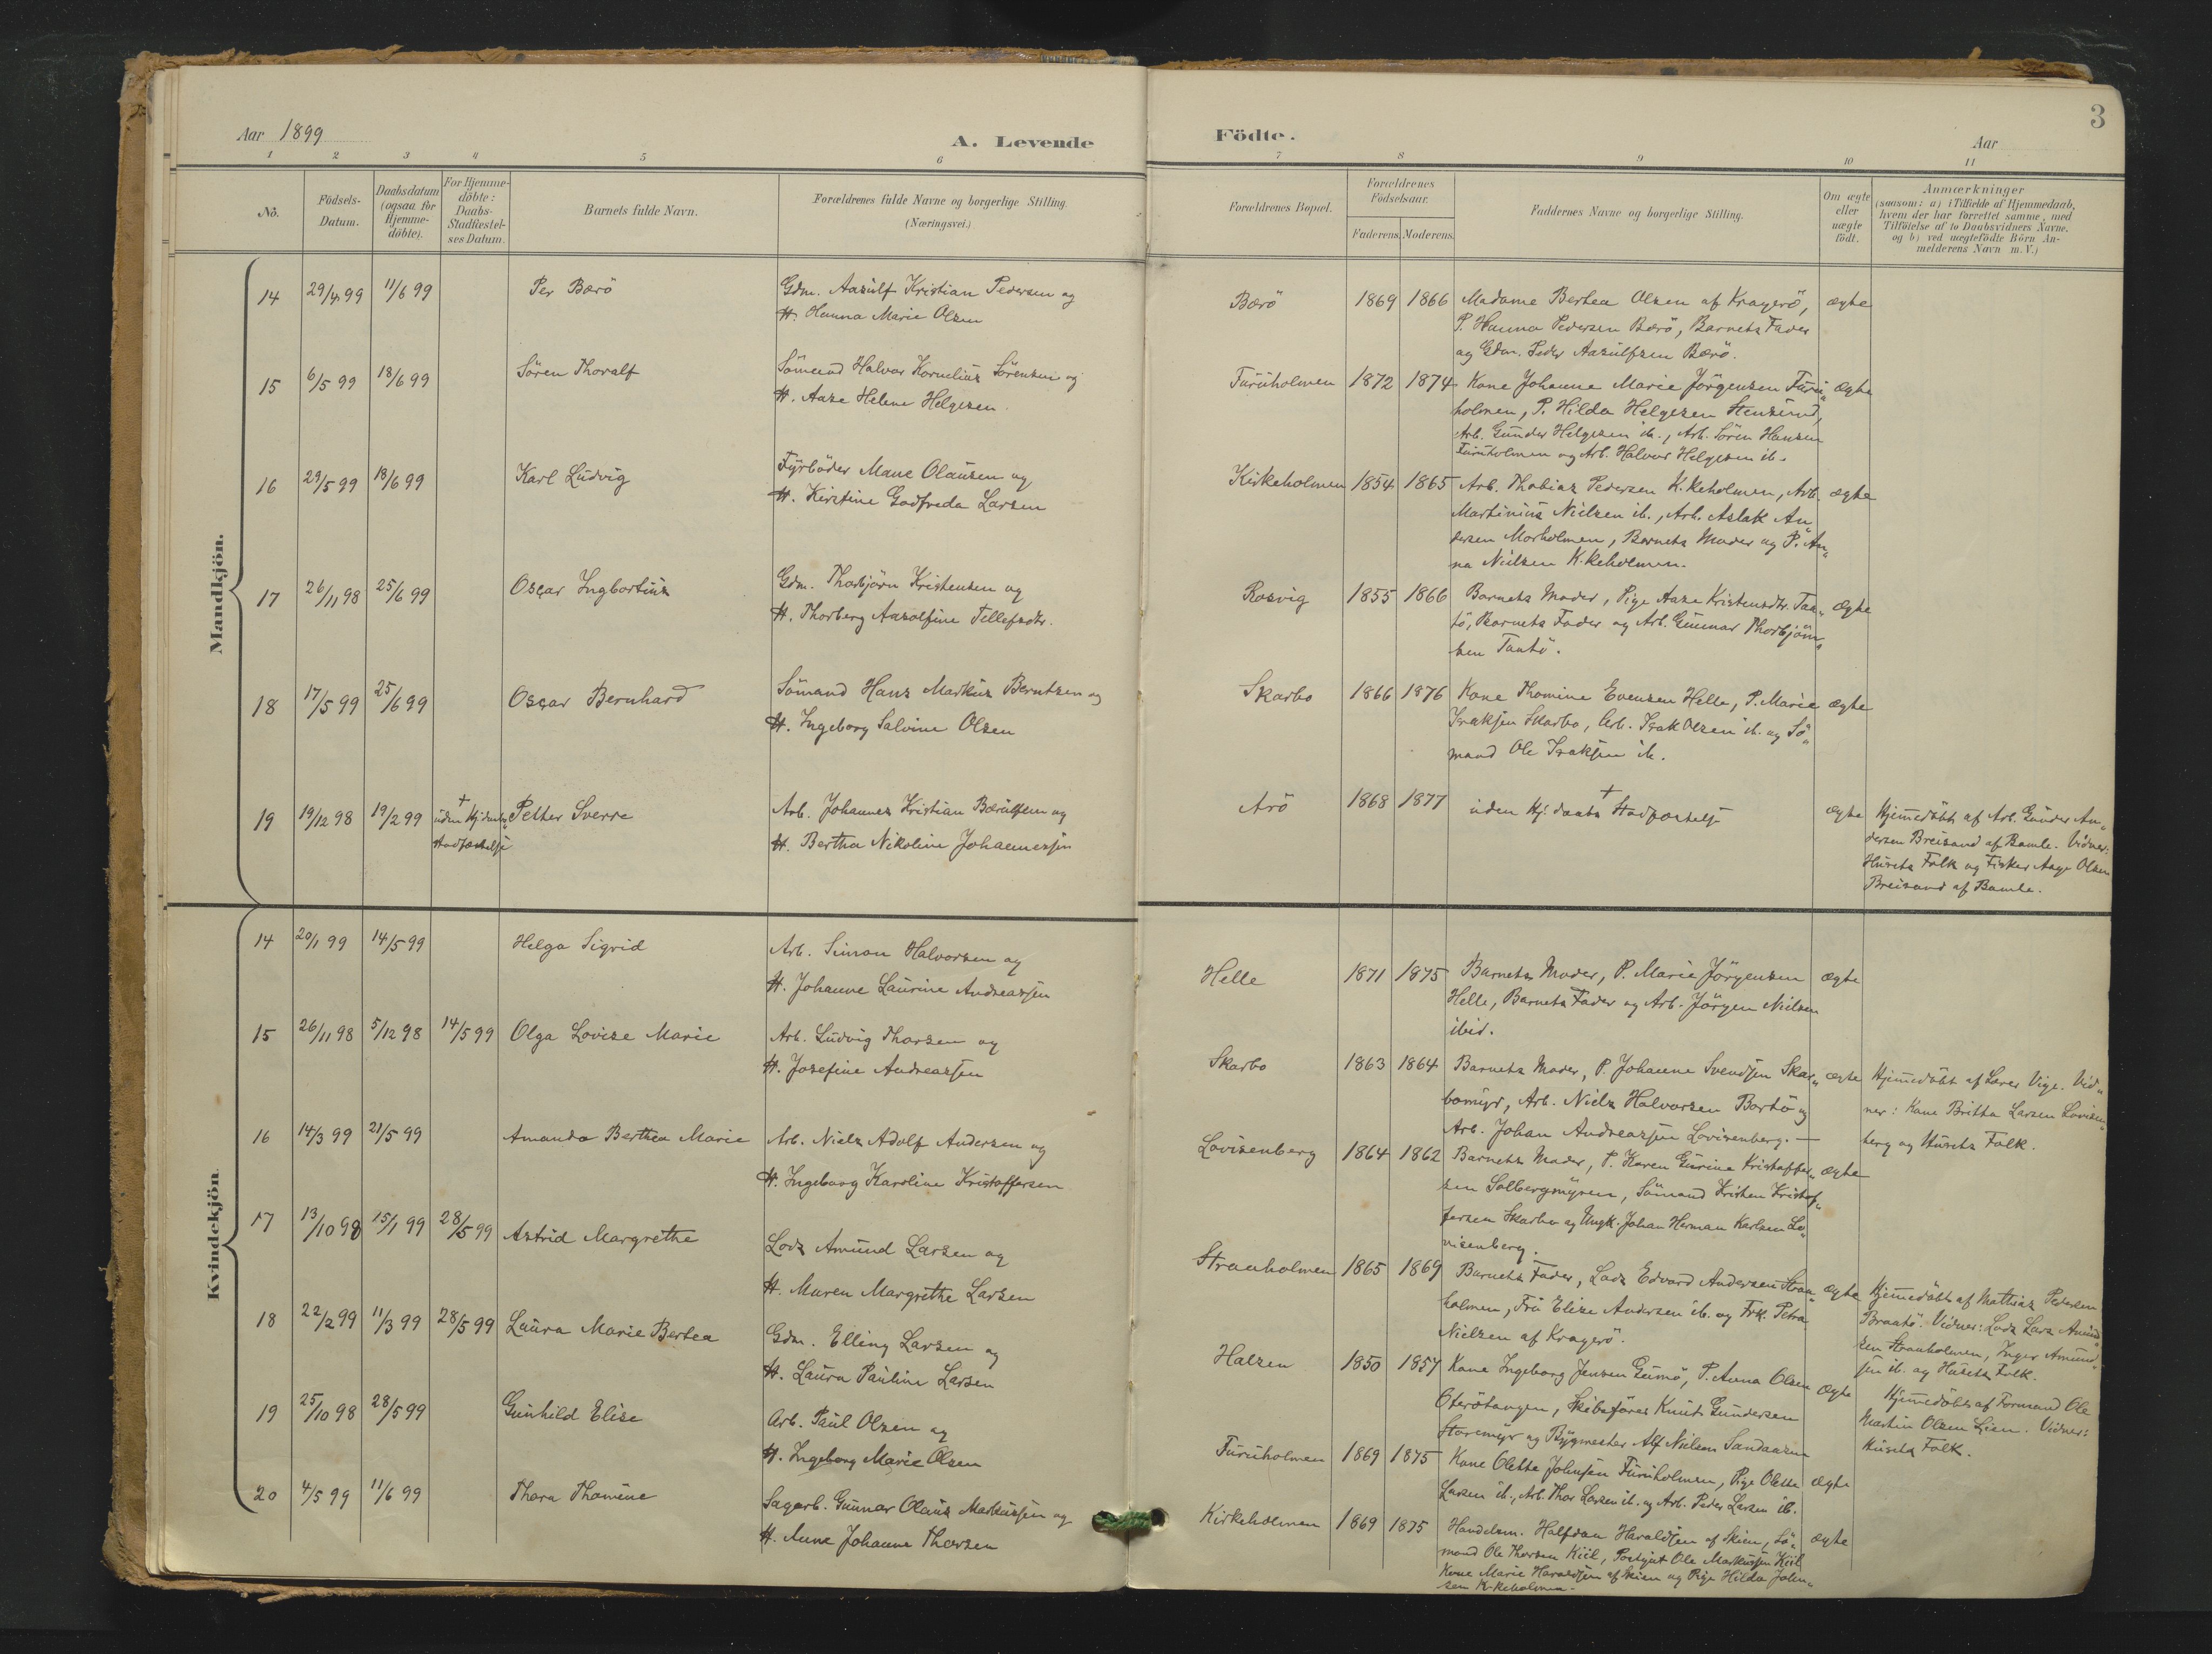 Aar 1899
A. Levende
Födte.
3
Aar
1 2 3 4 5 6 7 8 9 10 11
No.
Födsels-
Datum.
Daabsdatum
(ogsaa for
Hjemme-
döbte).
For Hjemme-
döbte:
Daabs-
Stadfæstel-
ses Datum.
Barnets fulde Navn.
Forældrenes fulde Navne og borgerlige Stilling.
(Næringsvei.)
Forældrenes Bopæl.
Forældrenes
Födselsaar.
Faderens. Moderens.
Faddernes Navne og borgerlige Stilling.
Om ægte
eller
uægte
födt.
Anmærkninger
(saasom: a) i Tilfælde af Hjemmedaab,
hvem der har forrettet samme, med
Tilföielse af to Daabsvidners Navne,
og b) ved uægtefödte Börn An-
melderens Navn m. V.)
Mandkjön.
14 29/4 99 11/6 99 Per Barö
Gdm. Aasulf Kristian Pedersen og
H. Hanna Marie Olsen
Barö 1869 1866 Madame Berthea Olsen af Kragerö, ægte
P. Hanna Pedersen Barö, Barnets Fader
og Gdm. Peder Aasulfsen Barö.
15 6/5 99 18/6 99 Sören Thoralf
Sömand Halvor Kornelius Sörensen og
H. Aase Helene Helgesen
Furuholmen 1872 1874 Kone Johanne Marie Jörgensen Furu„ ægte
holmen, P. Hilda Helgesen Stensund,
Arb. Gunder Helgesen ib., Arb. Sören Hansen
Furuholmen og Arb. Halvor Helgesen ib.
16 29/5 99 18/6 99 Karl Ludvig
Fyrböder Mane Olausen og
H. Kirstine Godfreda Larsen
Kirkeholmen 1854 1865 Arb. Thobias Pedersen K.keholmen, Arb. ægte
Martinius Nielsen ib., Arb. Aslak An„
dersen Morholmen, Barnets Moder og P. An„
na Nielsen K.keholmen.
17 26/11 98 25/6 99 Oscar Ingbortius
Gdm. Thorbjörn Kristensen og
H. Thorberg Aasolfine Tellefsdtr.
Rosvig 1855 1866 Barnets Moder, Pige Aase Kristensdtr. Taa„ ægte
tö, Barnets Fader og Arb. Gunnar Thorbjörn„
sen Taatö.
18 17/5 99 25/6 99 Oscar Bernhard
Sömand Hans Markus Berntsen og
H. Ingeborg Salvine Olsen
Skarbo 1866 1876 Kone Thomine Evensen Helle, P. Marie ægte
Isaksen Skarbo, Arb. Isak Olsen ib. og Sö„
mand Ole Isaksen ib.
19 19/12 98 19/2 99 † uden Hjdaabs„ Petter Sverre
stadfæstelse
Arb. Johannes Kristian Bærulfsen og
H. Bertha Nikoline Johannessen
Arö 1868 1877 † uden Hj. daabs Stadfæstelse ægte
Hjemmedöbt af Arb. Gunder An„
dersen Breisand af Bamle. Vidner:
Husets Folk og Fisker Aage Olsen
Breisand af Bamle.
Kvindekjön.
14 20/1 99 14/5 99 Helga Sigrid
Arb. Simon Halvorsen og
H. Johanne Laurine Andreassen
Helle 1871 1875 Barnets Moder, P. Marie Jörgensen ægte
Helle, Barnets Fader og Arb. Jörgen Nielsen
ibid.
15 26/11 98 5/12 98 14/5 99 Olga Lovise Marie
Arb. Ludvig Thorsen og
H. Josefine Andreassen
Skarbo 1863 1864 Barnets Moder, P. Johanne Svendsen Skar„ ægte
bomyr, Arb. Niels Halvorsen Bortö og
Arb. Johan Andreassen Lovisenberg. —
Hjemmedöbt af Lærer Vige. Vid„
ner: Kone Britha Larsen Lovisen„
berg og Husets Folk.
16 14/3 99 21/5 99 Amanda Berthea Marie
Arb. Niels Adolf Andersen og
H. Ingeborg Karoline Kristoffersen
Lovisenberg 1864 1862 Barnets Moder, P. Karen Gurine Kristoffer„ ægte
sen Solbergmyren, Sömand Kristen Kristof„
fersen Skarbo og Ungk. Johan Herman Karlsen Lo„
visenberg.
17 13/10 98 15/1 99 28/5 99 Astrid Margrethe
Lods Amund Larsen og
H. Maren Margrethe Larsen
Straaholmen 1865 1869 Barnets Fader, Lods Edvard Andersen Straa„ ægte
holmen, Fru Elise Andersen ib. og Frk. Petra
Nielsen af Kragerö.
Hjemmedöbt af Mathias Pedersen
Braatö. Vidner: Lods Lars Amund„
sen Straaholmen, Inger Amund„
sen ib. og Husets Folk.
18 22/2 99 11/3 99 28/5 99 Laura Marie Bertea
Gdm. Elling Larsen og
H. Laura Pauline Larsen
Halsen 1850 1857 Kone Ingeborg Jensen Gumö, P. Anna Olsen ægte
Oterötangen, Skibsförer Knut Gundersen
Storemyr og Bygmester Alf Nielsen Sandaasen
Hjemmedöbt af Formand Ole
Martin Olsen Lien. Vidner:
Husets Folk.
19 25/10 98 28/5 99 Gunhild Elise
Arb. Paul Olsen og
H. Ingeborg Marie Olsen
Furuholmen 1869 1875 Kone Olette Johnsen Furuholmen, Pige Olette ægte
Larsen ib., Arb. Thor Larsen ib. og Arb. Peder Larsen ib.
20 4/5 99 11/6 99 Thora Thomine
Sagarb. Gunnar Olaus Markussen og
H. Anne Johanne Thorsen
Kirkeholmen 1869 1875 Handelsm. Halfdan Haraldsen af Skien, Sö„ ægte
mand Ole Thorsen Kiil, Ole Markussen Kiil
Kone Marie Haraldsen af Skien og Pige Hilda John„
sen K.keholmen.